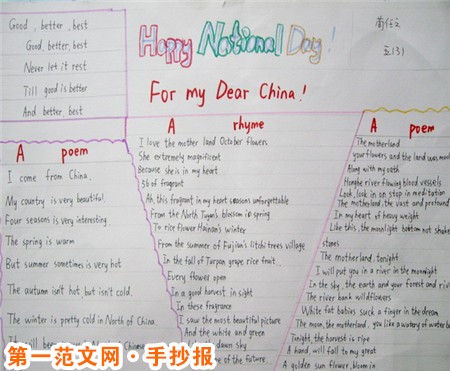 Good, better, best
Good, better, best
Never let it rest
Till good is better
And better, best
Happy National Day!
For my Dear China!
五131
A poem
I come from China.
My country is very beautiful.
Four seasons is very interesting.
The spring is warm
But summer sometimes is very hot
The autumn isn't hot, but isn't cold.
The winter is pretty cold in North of China.
A rhyme
I love the mother land October flowers
She extremely magnificent
Because she is in my heart
So fragrant
Ah, this fragrant in my heart seasons unforgettable
From the North Tugan's blossom is spring
To rice flower Hainan's winter
From the summer of Fujian's litchi trees village
In the fall of Turpan grape rice fruit.
Every flower open
In a good harvest in sight
In these fragrance
I saw the most beautiful picture
And the white and green
dawn sky
of the future.
A poem
The motherland
your flowers and the land was
Along with my oath
Honghe river flowing blood vessels
Look, look in on stop in meditation
The motherland, the vast and profound
In my heart of heavy weight
Like this, the moonlight bottom not shake
stones
The motherland, tonight
I will put you in a river in the moonlight
In the sky, the earth and your forest and river
The river bank wildflowers
White fat babies suck a finger in the dream
The moon, the motherland, you like a watery of water
Tonight, the harvest is ripe
A hand, will fall to my great
A golden sun flower, bloom in
第一范文网·手抄报